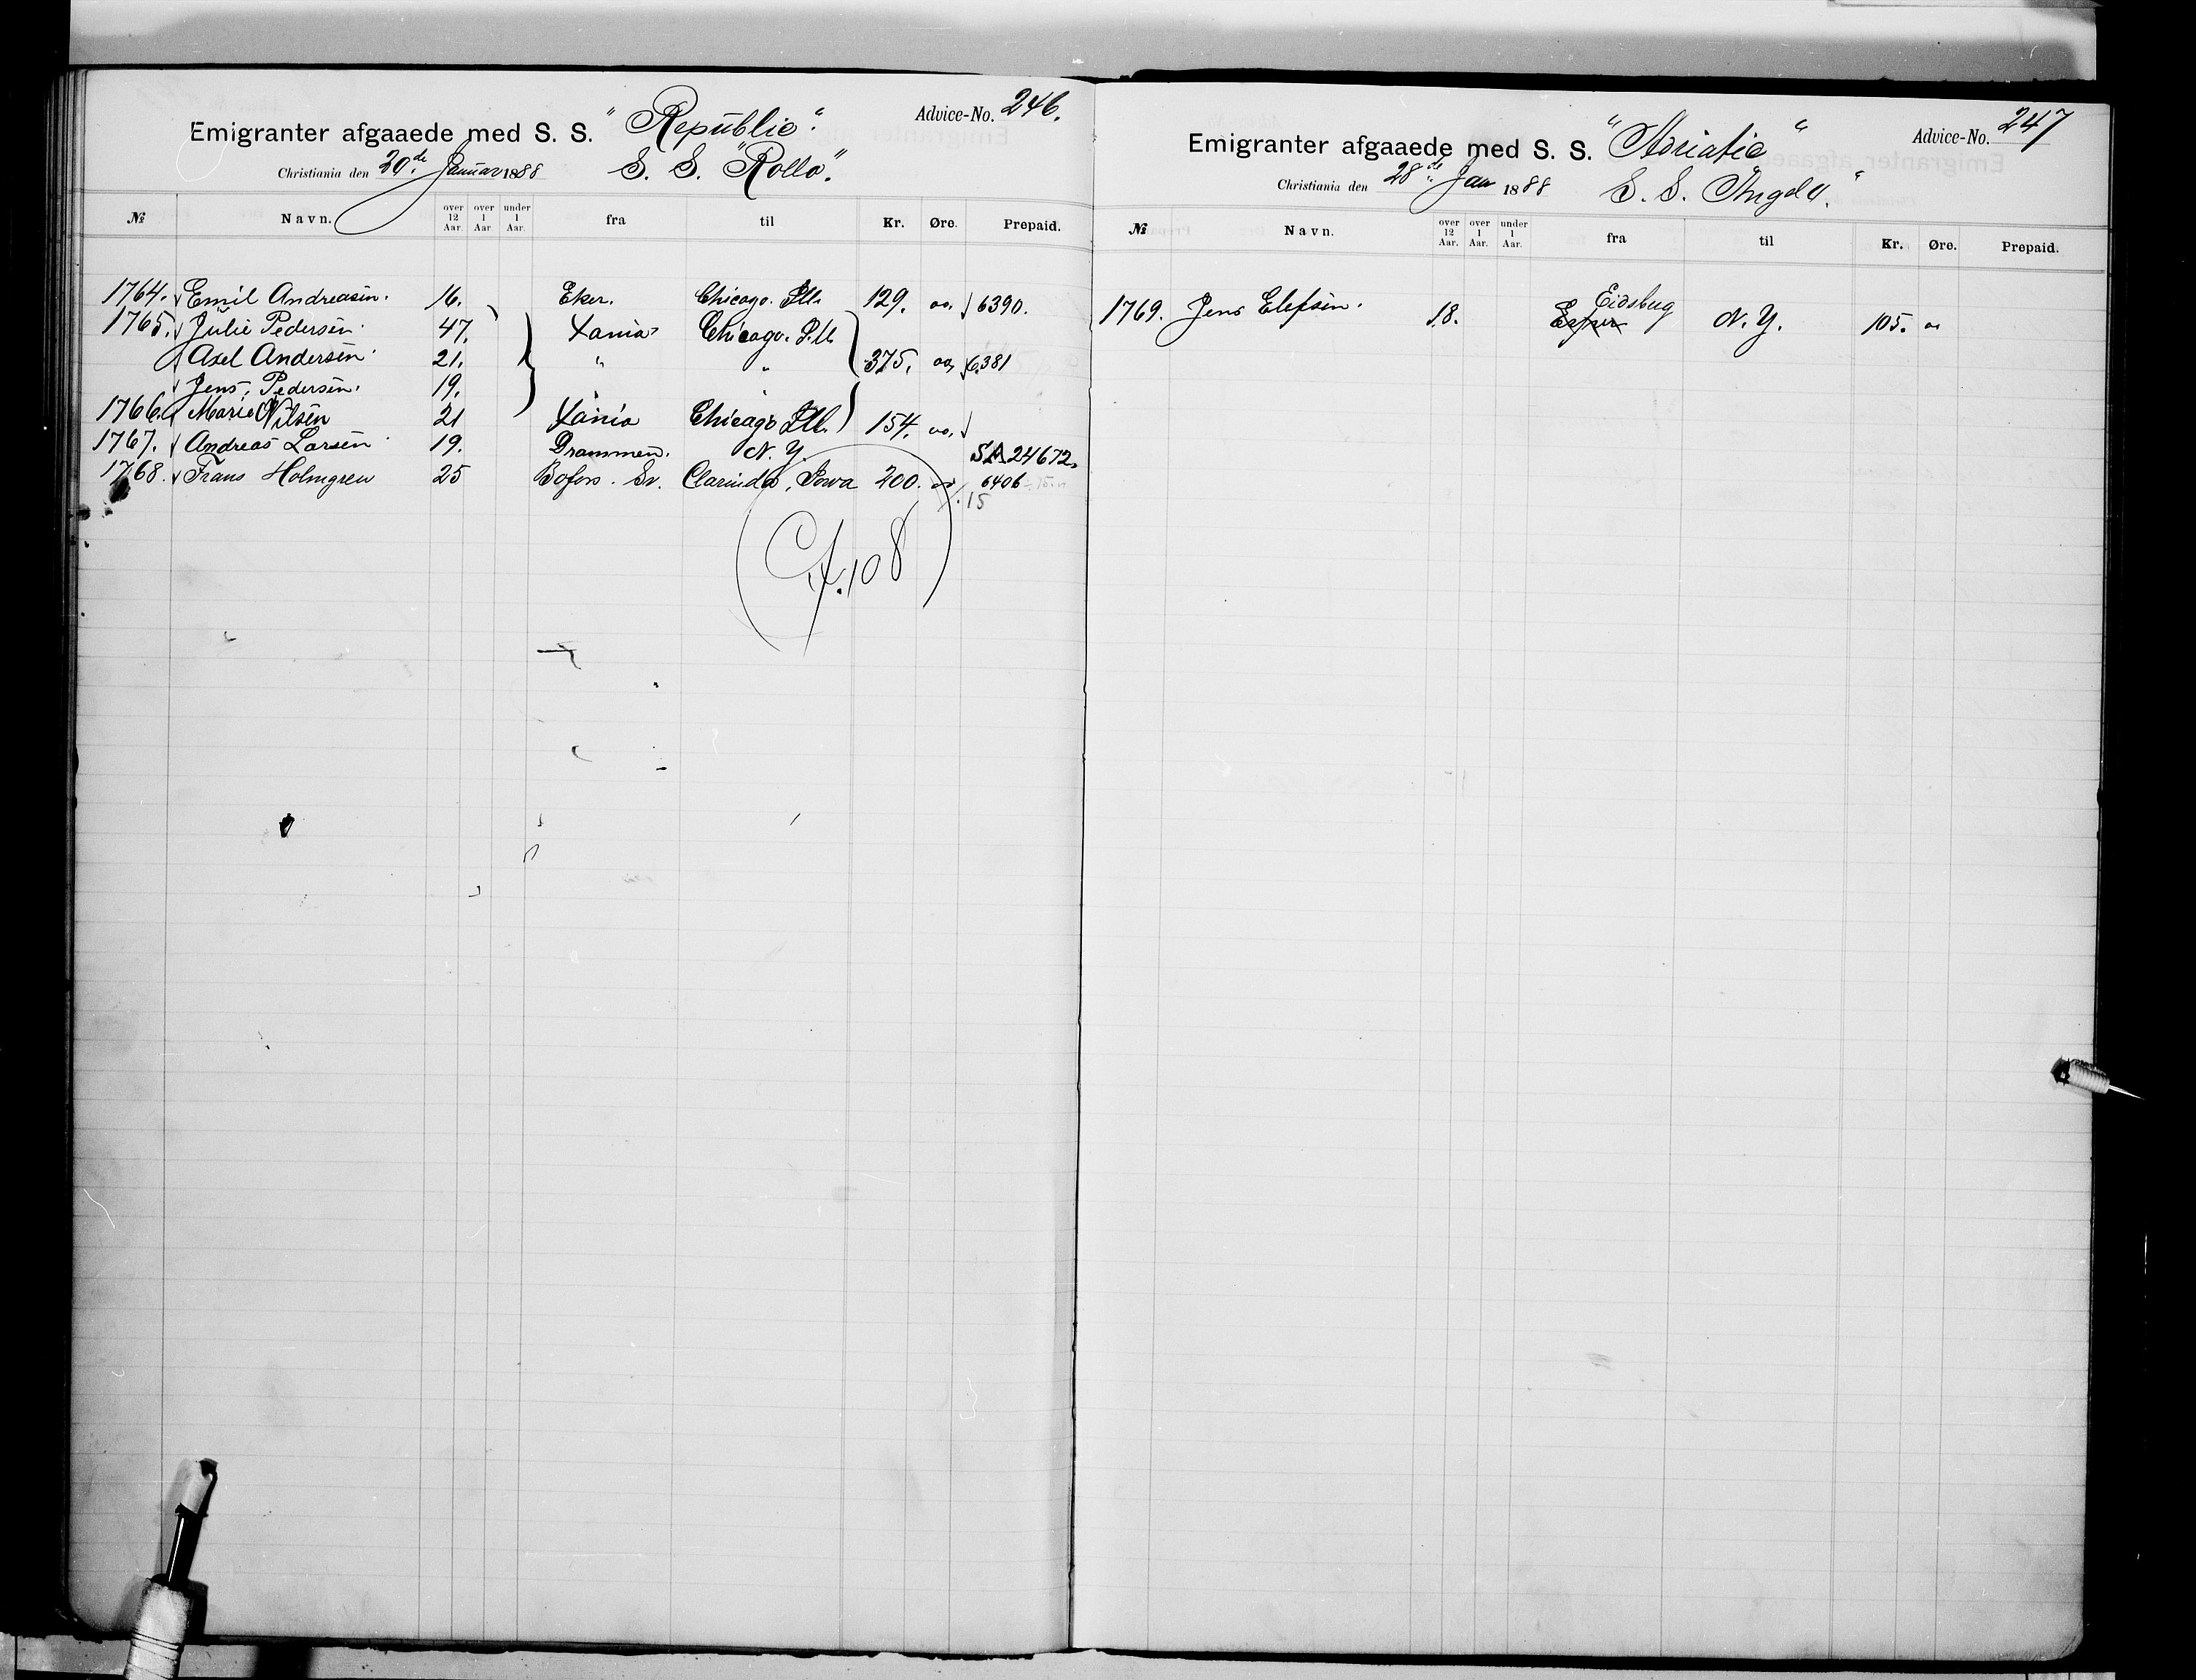 Emigranter afgaaede med S. S. "Republic". Advice-No. 246.
Christiania den 20de Januar 1888 S. S. "Rollo".
№ Navn. over 12 Aar. over 1 Aar. under 1 Aar. fra til Kr. Øre. Prepaid.
1764. Emil Andreasen. 16. Eker. Chicago. Ill. 129. oo. 6390.
1765. Julie Pedersen. 47. Xania Chicago. Ill.
Axel Andersen. 21. " " 375. oo. 6381
Jens. Pedersen. 19. "
1766. Marie Nilsen 21 Xania Chicago Ill. 154. oo.
1767. Andreas Larsen 19. Drammen. N. Y. SA 24672.
1768. Frans Holmgren 25 Bofors. Sv. Clarinda, Iowa 200. oo 6406
15
108
Emigranter afgaaede med S. S. "Adriatic" Advice-No. 247
Christiania den 28de Jan 1888 S. S. "Angelo."
№ Navn. over 12 Aar. over 1 Aar. under 1 Aar. fra til Kr. Øre. Prepaid.
Eidsbug
1769. Jens Elefsen. 18. N. Y. 105. oo